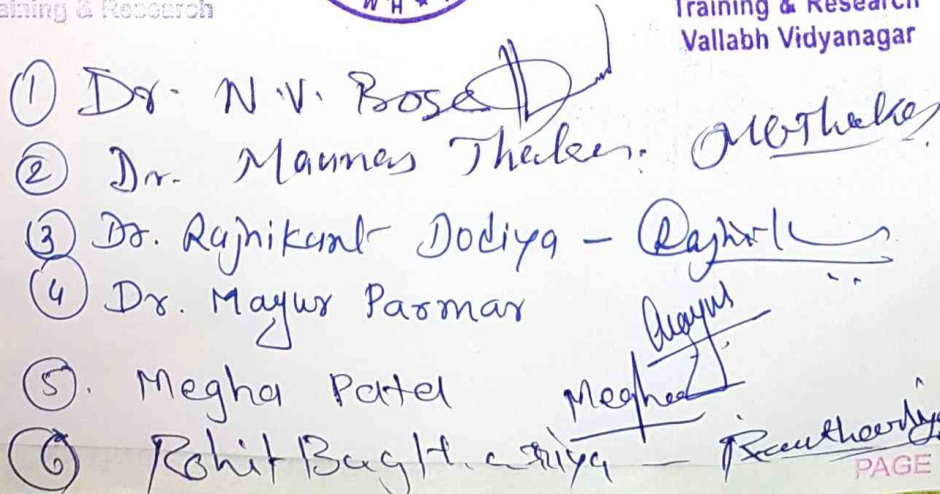 Training & Research
Training & Research
Vallabh Vidyanagar
W H
① Dr. N.V. Bose
② Dr. Maunas Thaker.
③ Dr. Rajnikant Dodiya -
④ Dr. Mayur Parmar
Mayur
⑤. Megha Patel Megha
⑥ Rohit Bagthariya -
PAGE